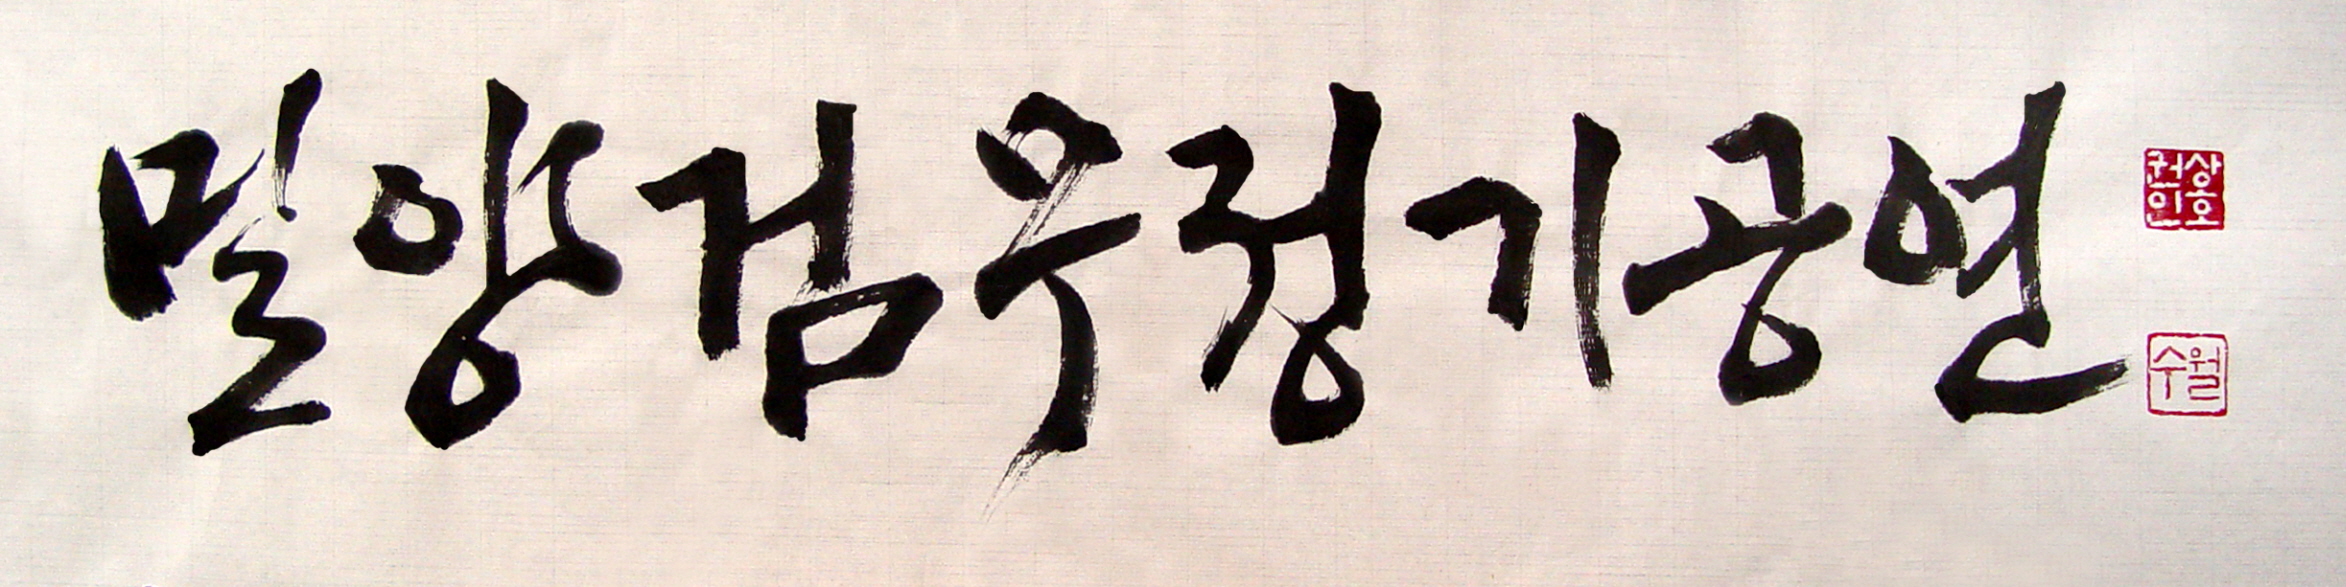 밀양검무정기공연
권상호인
수월